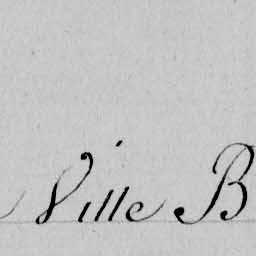 Ville B